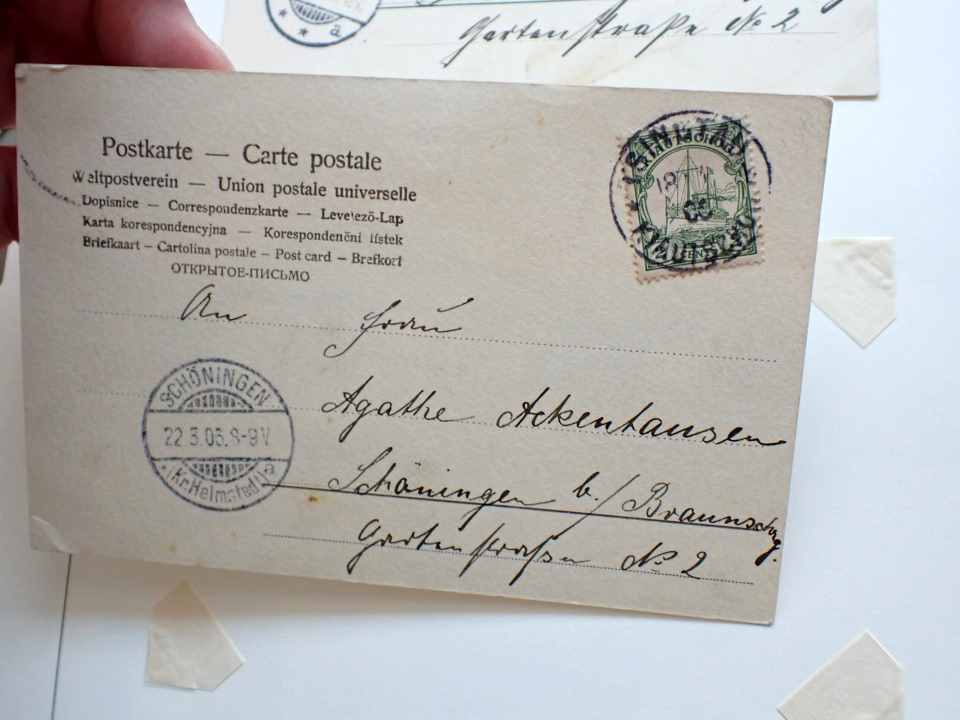 a
Gartenstraße No 2
Postkarte — Carte postale
Weltpostverein — Union postale universelle
Dopisnice — Correspondenzkarte — Levelező-Lap
Karta korespondencyjna — Korespondenční lístek
Briefkaart — Cartolina postale — Post card — Brefkort
ОТКРЫТОЕ-ПИСЬМО
TSINGTAU
KIAUTSCHOU
KIAUTSCHOU
An Frau
Agathe Ackenhausen
SCHÖNINGEN
22.3.06.8-9V
(Kr. Helmstedt) a
Schöningen b./Braunschg.
Gartenstraße No 2